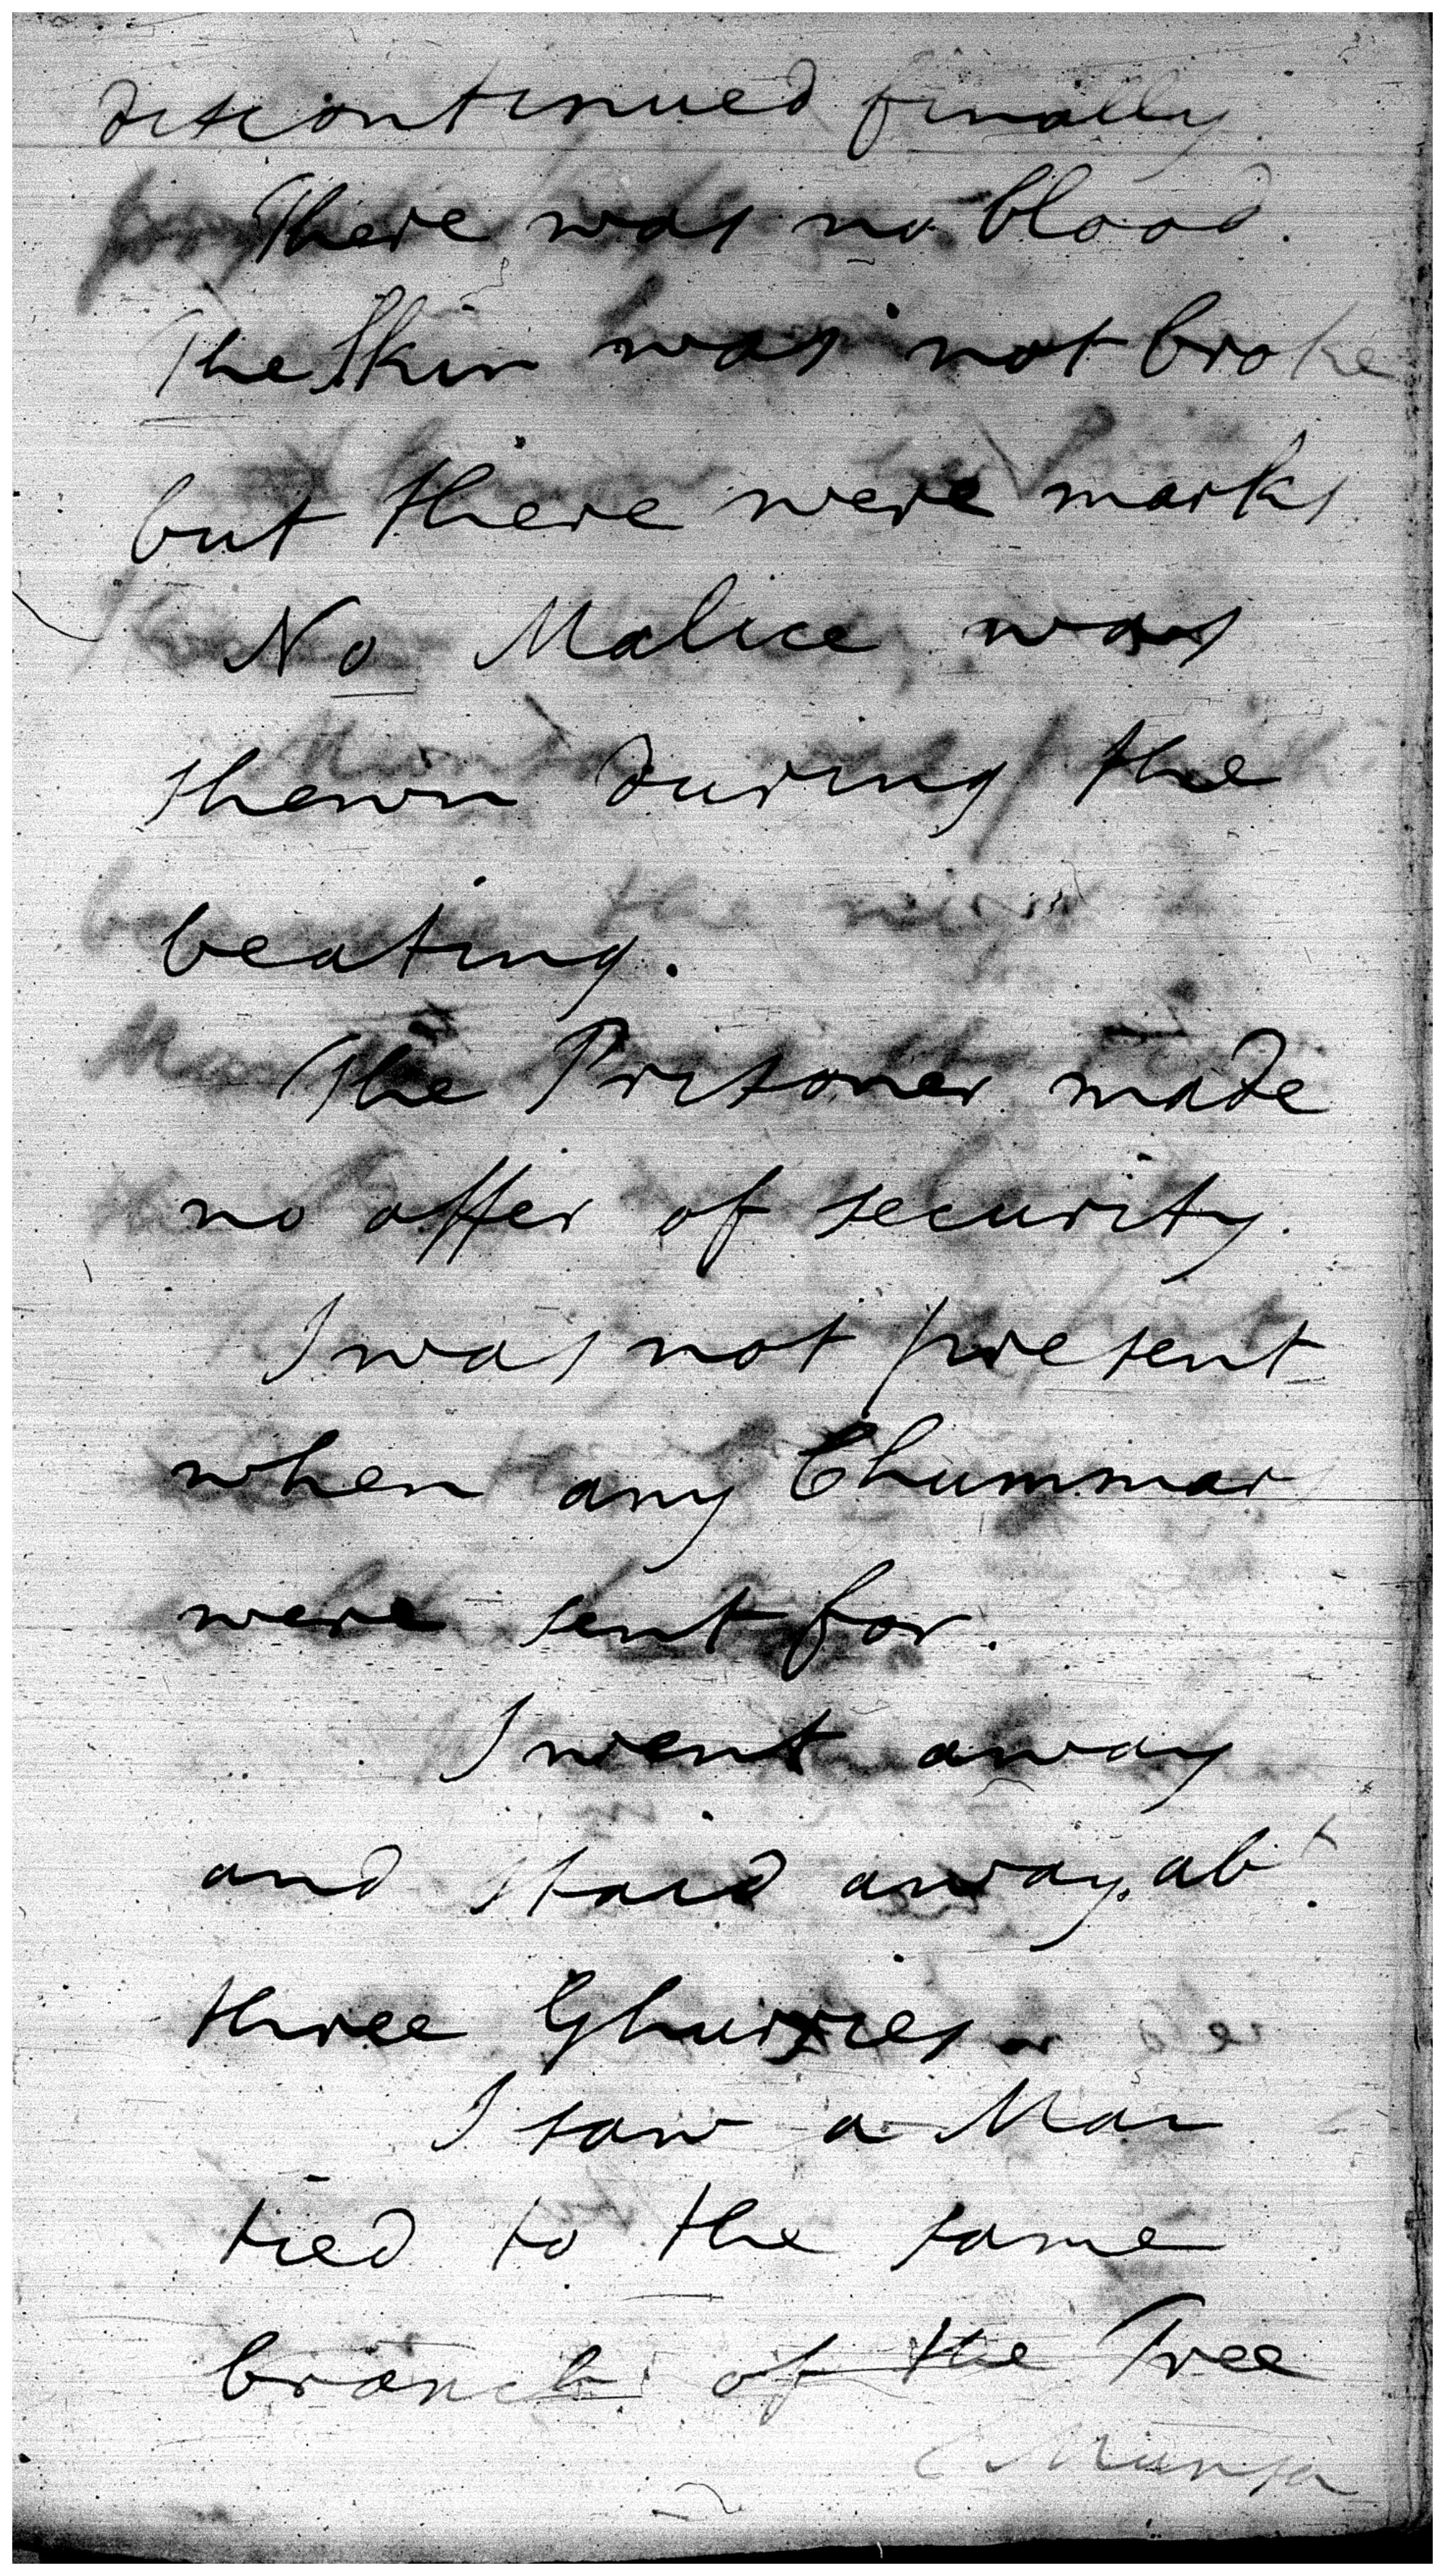 discontinued finally
There was no blood.
The Skin was not broke
but there were marks
No Malice was
shewn during the
beating.
The Prisoner made
no offer of security.
I was not present
when any Chummar
were sent for.
I went away
and staid away, abt.
three Ghurries
I saw a Man
tied to the same
branch of the Tree
Munsa